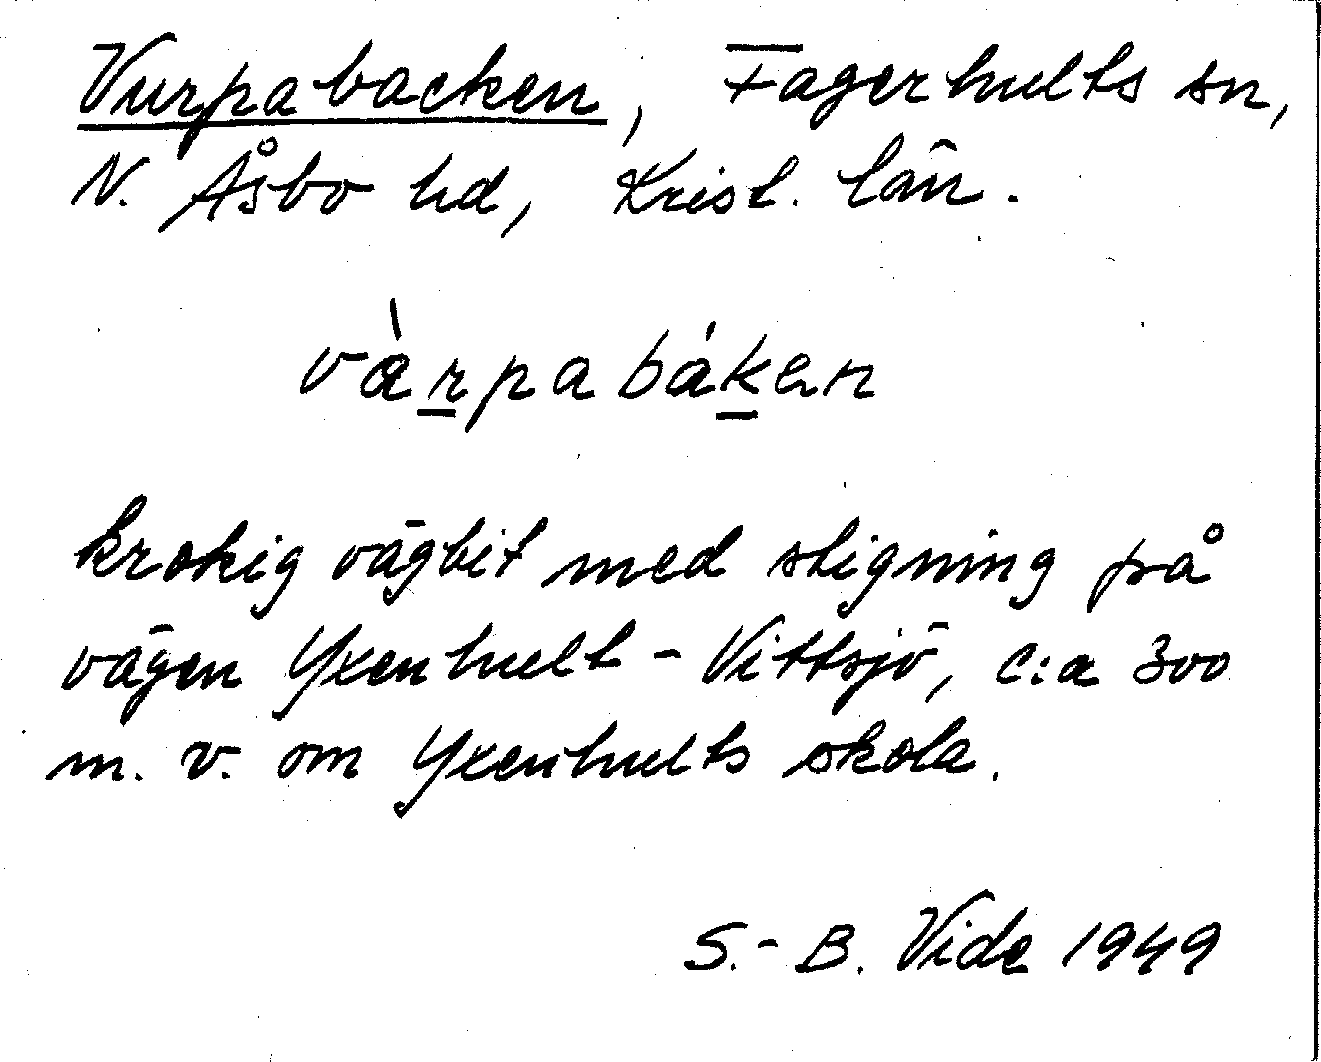 Vurpabacken, Fagerhults sn,
N. Åsbo hd, Krist. län.
vàrpabáken
krokig vägbit med stigning på
vägen Yxenhult - Vittsjö, c:a 300
m. v. om Yxenhults skola.
S.-B. Vide 1949